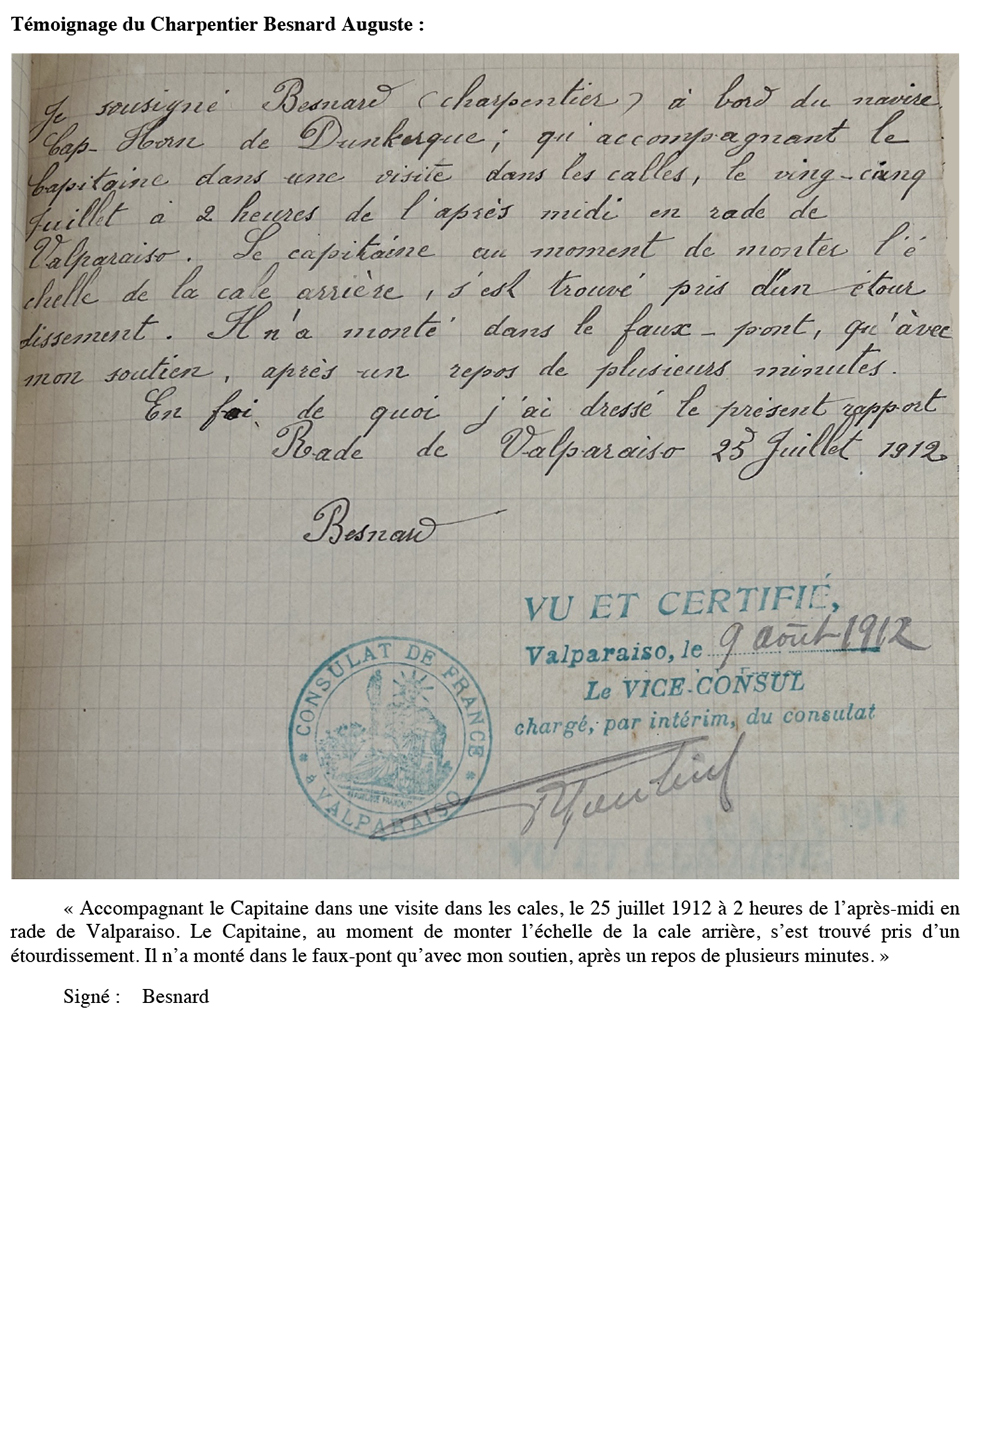 Témoignage du Charpentier Besnard Auguste :
Je sousigné Besnard (charpentier) à bord du navire
Cap-Horn de Dunkerque ; qu'accompagnant le
Capitaine dans une visite dans les calles, le ving-cinq
Juillet à 2 heures de l'après midi en rade de
Valparaiso. Le capitaine au moment de monter l'é
chelle de la cale arrière, s'est trouvé pris d'un étour
dissement. Il n'a monté dans le faux-pont, qu'avec
mon soutien, après un repos de plusieurs minutes.
En foi de quoi j'ai dressé le présent rapport
Rade de Valparaiso 25 Juillet 1912.
Besnard
VU ET CERTIFIÉ,
Valparaiso, le 9 août 1912
Le VICE-CONSUL
chargé, par intérim, du consulat
CONSULAT DE FRANCE
* à VALPARAISO *
RÉPUBLIQUE FRANÇAISE
« Accompagnant le Capitaine dans une visite dans les cales, le 25 juillet 1912 à 2 heures de l'après-midi en
rade de Valparaiso. Le Capitaine, au moment de monter l'échelle de la cale arrière, s'est trouvé pris d'un
étourdissement. Il n'a monté dans le faux-pont qu'avec mon soutien, après un repos de plusieurs minutes. »
Signé : Besnard